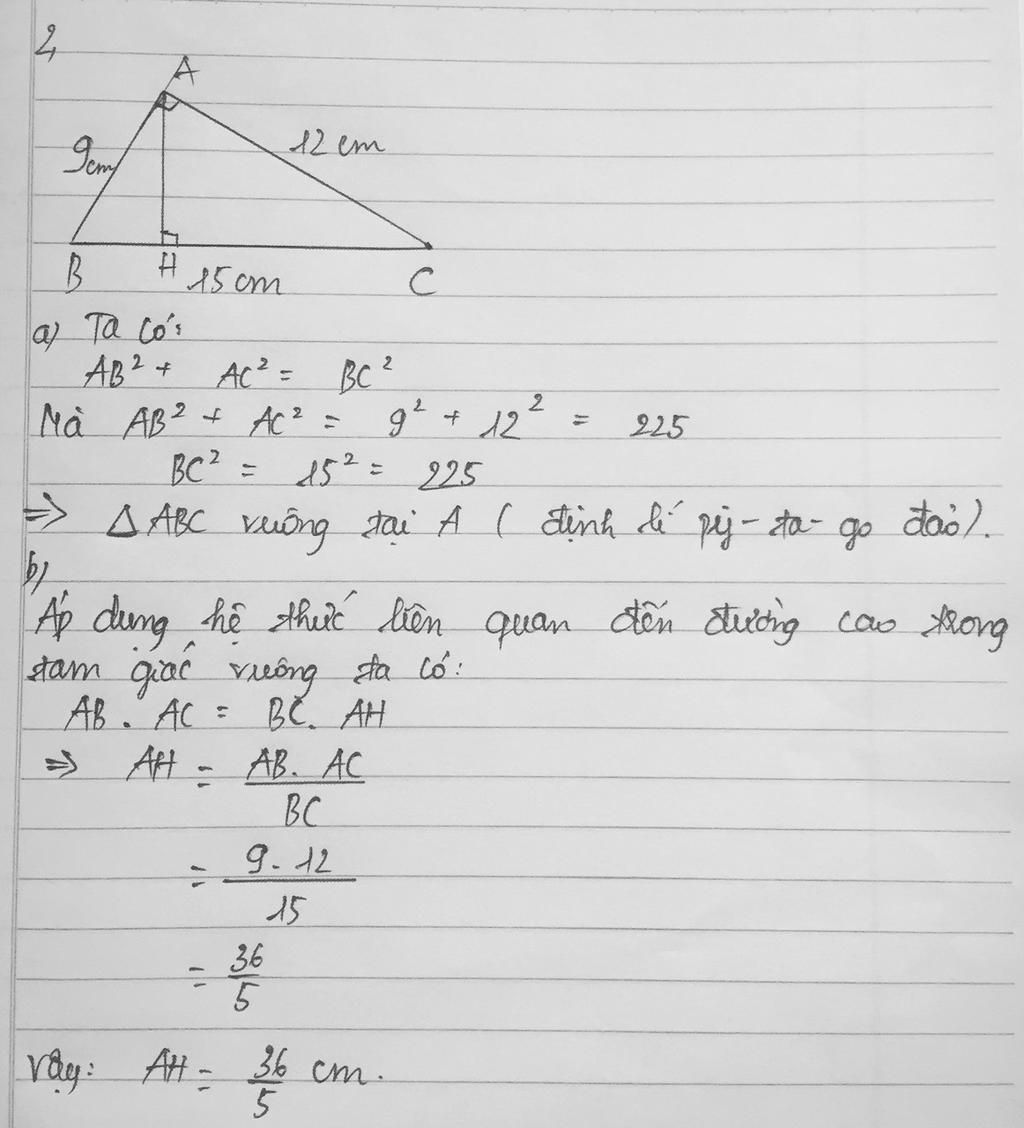 2,
A
9cm
12 cm
B
H
15 cm
C
a) Ta có:
AB² + AC² = BC²
Mà AB² + AC² = 9² + 12² = 225
BC² = 15² = 225
=> Δ ABC vuông tại A ( định lí py-ta-go đảo).
b)
Áp dụng hệ thức liên quan đến đường cao trong
tam giác vuông ta có:
AB . AC = BC. AH
=> AH = AB. AC
BC
= 9. 12
15
= 36
5
Vậy: AH = 36/5 cm.